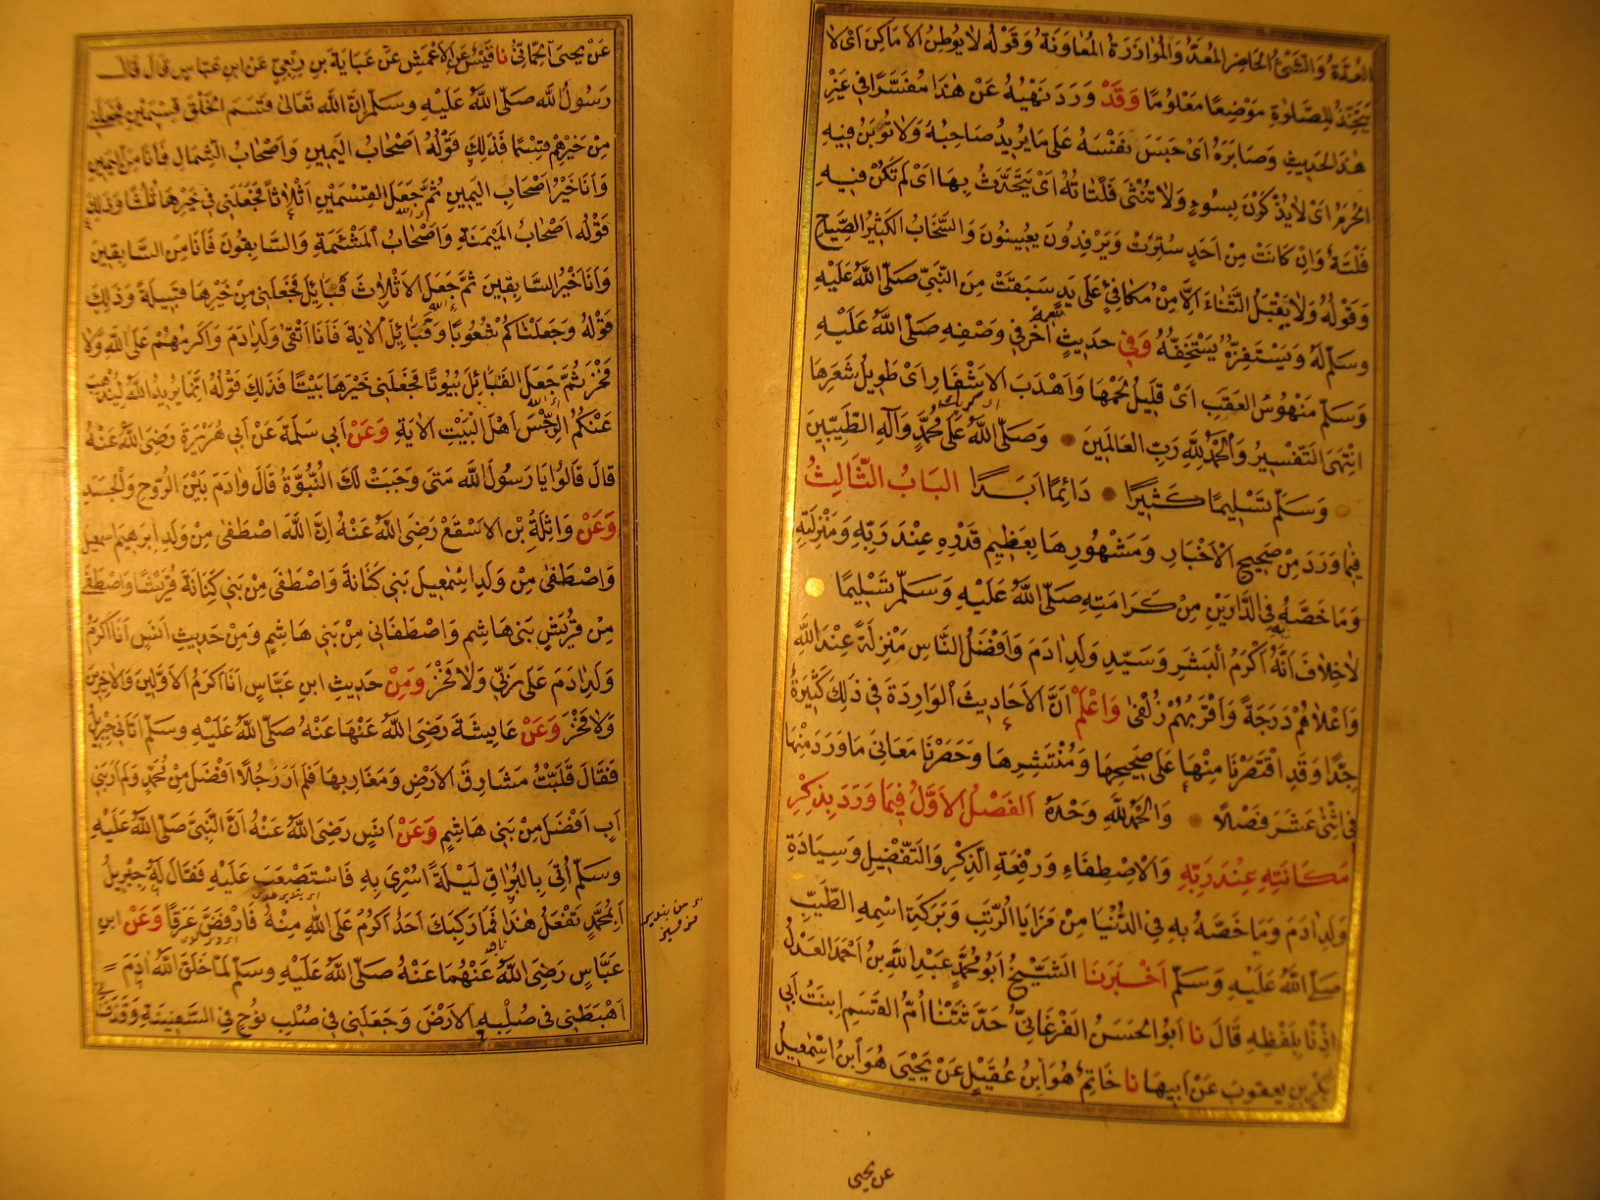 العدة والشئ الحاضر المعد والموازرة المعاونة وقوله لا يوطن الاماكن اى لا
يتخذ للصلاة موضعا معلوما وقد ورد نهيه عن هذا مفسرا فى غير
هذا الحديث وصابره اى حبس نفسه على ما يريد صاحبه ولا تؤبن فيه
الحرم اى لا يذكرن بسوء ولا تنثى فلتاته اى يتحدث بها اى لم تكن فيه
فلتة وان كانت من احد سترت ويرفدون يعينون والسخاب الكثير الصياح
وقوله ولا يقبل الثناء الا من مكافئ على يد سبقت من النبى صلى الله عليه
وسلم له ويستفزه يستخفه وفى حديث آخر فى وصفه صلى الله عليه
وسلم منهوس العقب اى قليل لحمها واهدب الاشفار اى طويل شعرها
انتهى التفسير والحمد لله رب العالمين وصلى الله على محمد وآله الطيبين
وسلم تسليما كثيرا دائما ابدا الباب الثالث
فيما ورد من صحيح الاخبار ومشهورها بعظيم قدره عند ربه ومنزلته
وما خصه به فى الدارين من كرامته صلى الله عليه وسلم تسليما
لا خلاف انه اكرم البشر وسيد ولد ادم وافضل الناس منزلة عند الله
واعلاهم درجة واقربهم زلفى واعلم ان الاحاديث الواردة فى ذلك كثيرة
جدا وقد اقتصرنا منها على صحيحها ومنتشرها وحصرنا معانى ما ورد منها
فى اثنى عشر فصلا والحمد لله وحده الفصل الاول فيما ورد بذكر
مكانته عند ربه والاصطفاء ورفعة الذكر والتفضيل وسيادة
ولد ادم وما خصه به فى الدنيا من مزايا الرتب وبركة اسمه الطيب
صلى الله عليه وسلم اخبرنا الشيخ ابو محمد عبد الله بن احمد العدل
اذنا بلفظه قال نا ابو الحسن الفرغانى حدثتنا ام القسم ابنت ابى
بكر بن يعقوب عن ابيها نا حاتم هو ابن عقيل عن يحيى هو ابن اسمعيل
عن يحيى
عن يحيى الحمانى نا قيس عن الاعمش عن عباية بن ربعى عن ابن عباس قال قال
رسول الله صلى الله عليه وسلم ان الله تعالى قسم الخلق قسمين فجعلنى
من خيرهم قسما فذلك قوله اصحاب اليمين واصحاب الشمال فانا من اليمين
وانا خير اصحاب اليمين ثم جعل القسمين اثلاثا فجعلنى فى خيرها ثلثا وذلك
قوله اصحاب الميمنة واصحاب المشئمة والسابقون فانا من السابقين
وانا خير السابقين ثم جعل الاثلاث قبائل فجعلنى من خيرها قبيلة وذلك
قوله وجعلناكم شعوبا وقبائل الاية فانا اتقى ولد ادم واكرمهم على الله ولا
فخر ثم جعل القبائل بيوتا فجعلنى خيرها بيتا فذلك قوله انما يريد الله ليذهب
عنكم الرجس اهل البيت الاية وعن ابى سلمة عن ابى هريرة رضى الله عنه
قال قالوا يا رسول الله متى وجبت لك النبوة قال وادم بين الروح والجسد
وعن واثلة بن الاسقع رضى الله عنه ان الله اصطفى من ولد ابرهيم اسمعيل
واصطفى من ولد اسمعيل بنى كنانة واصطفى من بنى كنانة قريشا واصطفى
من قريش بنى هاشم واصطفانى من بنى هاشم ومن حديث انس انا اكرم
ولد ادم على ربى ولا فخر ومن حديث ابن عباس انا اكرم الاولين والاخرين
ولا فخر وعن عايشة رضى الله عنها عنه صلى الله عليه وسلم اتانى جبريل
فقال قلبت مشارق الارض ومغاربها فلم ار رجلا افضل من محمد ولم ار بنى
اب افضل من بنى هاشم وعن انس رضى الله عنه ان النبى صلى الله عليه
وسلم أتى بالبراق ليلة اسرى به فاستصعب عليه فقال له جبريل
أبمحمد تفعل هذا فما ركبك احد اكرم على الله منه فارفض عرقا وعن ابن
عباس رضى الله عنهما عنه صلى الله عليه وسلم لما خلق الله ادم
اهبطنى فى صلبه الى الارض وجعلنى فى صلب نوح فى السفينة وقذف